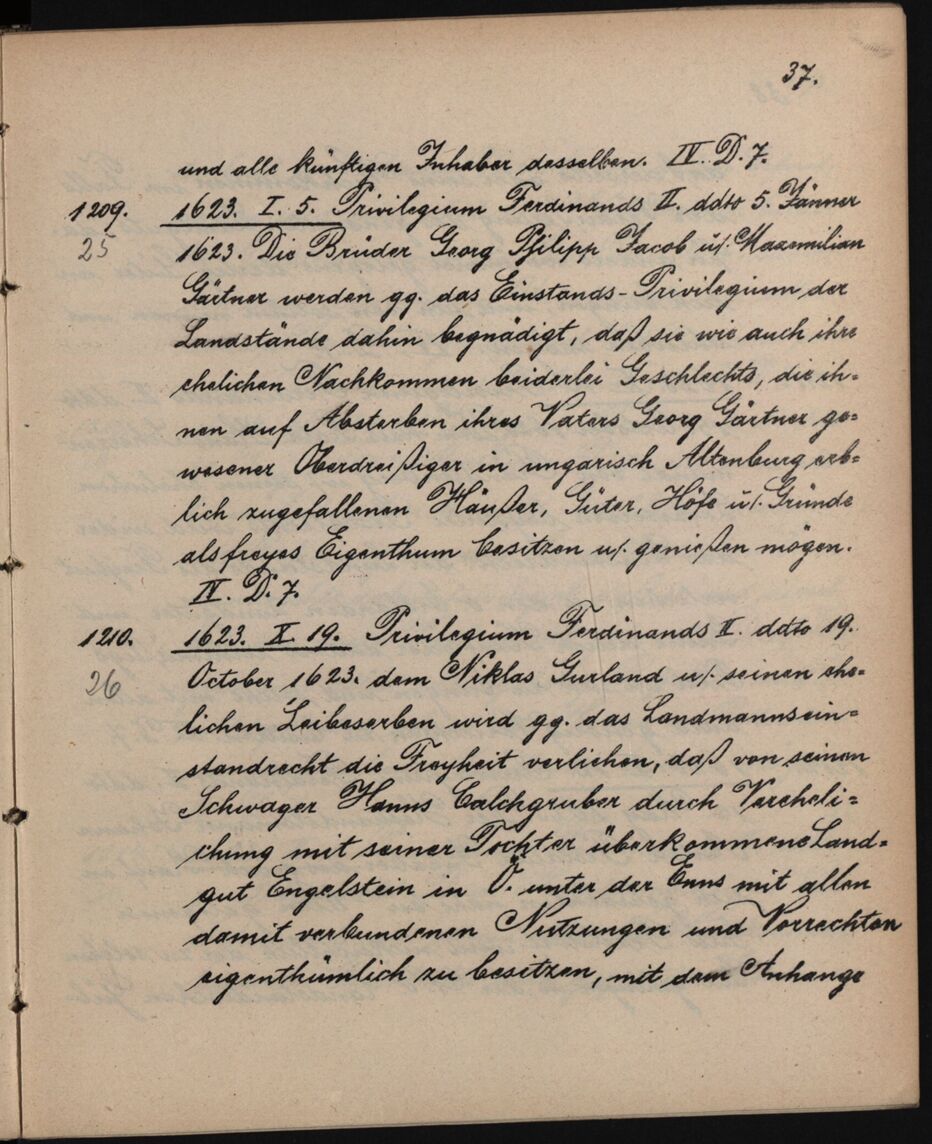 37.
und alle künftigen Inhaber desselben. IV. D. 7.
1209. 1623. I. 5. Privilegium Ferdinands II. ddto 5. Jänner
25 1623. Die Brüder Georg Philipp Jacob u/. Maxemilian
Gärtner werden gg. das Einstands-Privilegium der
Landstände dahin begnädigt, daß sie wie auch ihre
ehelichen Nachkommen beiderlei Geschlechts, die ih=
nen auf Absterben ihres Vaters Georg Gärtner ge=
wesener Oberdreißiger in ungarisch Altenburg erb=
lich zugefallenen Häußer, Güter, Höfe u/. Gründe
als freyes Eigenthum besitzen u/. genießen mögen.
IV. D. 7.
1210. 1623. X. 19. Privilegium Ferdinands II. ddto 19.
26 October 1623. dem Niklas Gurland u/. seinen ehe=
lichen Leibeserben wird gg. das Landmannsein=
standrecht die Freyheit verliehen, daß von seinen
Schwager Hanns Calchgruber durch Vereheli=
chung mit seiner Tochter überkommene Land=
gut Engelstein in Ö. unter der Enns mit allen
damit verbundenen Nutzungen und Vorrechten
eigenthümlich zu besitzen, mit dem Anhange